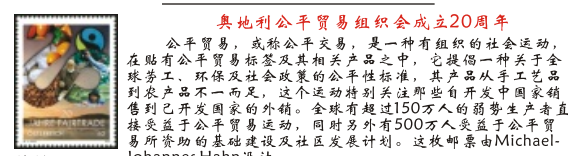 奥地利公平贸易组织会成立20周年
公平贸易，或称公平交易，是一种有组织的社会运动，
在贴有公平贸易标签及其相关产品之中，它提倡一种关于全
球劳工、环保及社会政策的公平性标准，其产品从手工艺品
到农产品不一而足，这个运动特别关注那些自开发中国家销
售到已开发国家的外销。全球有超过150万人的弱势生产者直
接受益于公平贸易运动，同时另外有500万人受益于公平贸
易所资助的基础建设及社区发展计划。这枚邮票由Michael-
Johannes Hahn设计
JAHRE FAIRTRADE